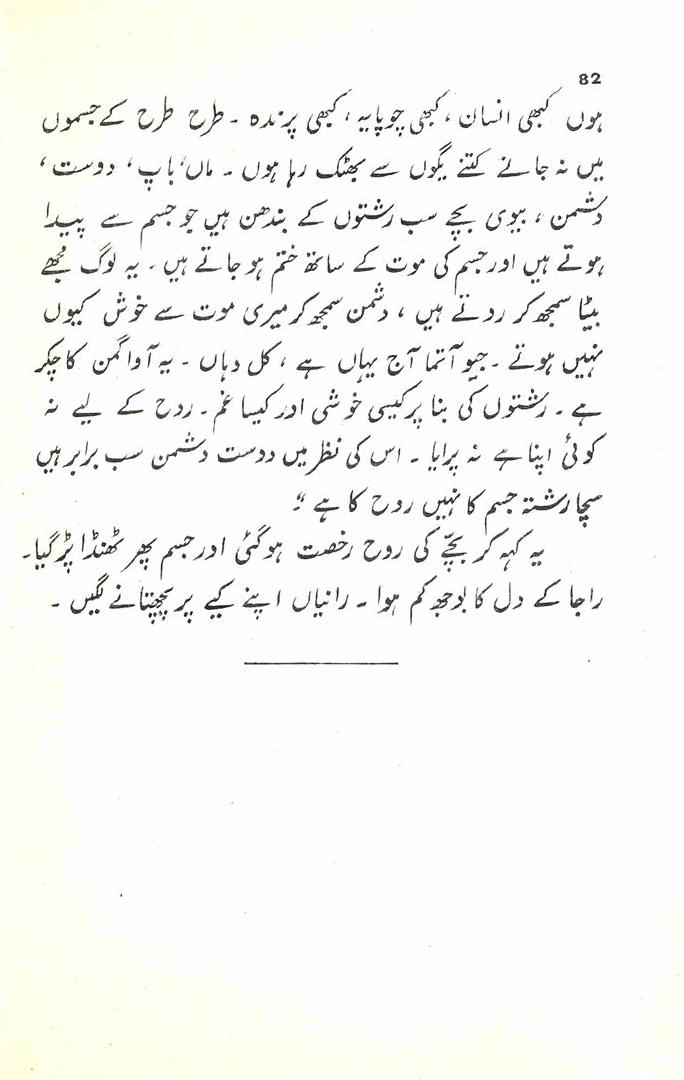 82
ہوں کبھی انسان، کبھی چوپایہ، کبھی پرندہ ۔ طرح طرح کے جسموں
میں نہ جانے کتنے یگوں سے بھٹک رہا ہوں ۔ ماں، باپ، دوست،
دشمن، بیوی بچے سب رشتوں کے بندھن ہیں جو جسم سے پیدا
ہوتے ہیں اور جسم کی موت کے ساتھ ختم ہو جاتے ہیں ۔ یہ لوگ مجھے
بیٹا سمجھ کر روتے ہیں، دشمن سمجھ کر میری موت سے خوش کیوں
نہیں ہوتے ۔ جیو آتما آج یہاں ہے، کل وہاں ۔ یہ آواگمن کا چکر
ہے ۔ رشتوں کی بنا پر کیسی خوشی اور کیسا غم ۔ روح کے لیے نہ
کوئی اپنا ہے نہ پرایا ۔ اس کی نظر میں دوست دشمن سب برابر ہیں
سچا رشتہ جسم کا نہیں روح کا ہے ۔"
یہ کہہ کر بچّے کی روح رخصت ہو گئی اور جسم پھر ٹھنڈا پڑ گیا ۔
راجا کے دل کا بوجھ کم ہوا ۔ رانیاں اپنے کیے پر پچھتانے لگیں ۔